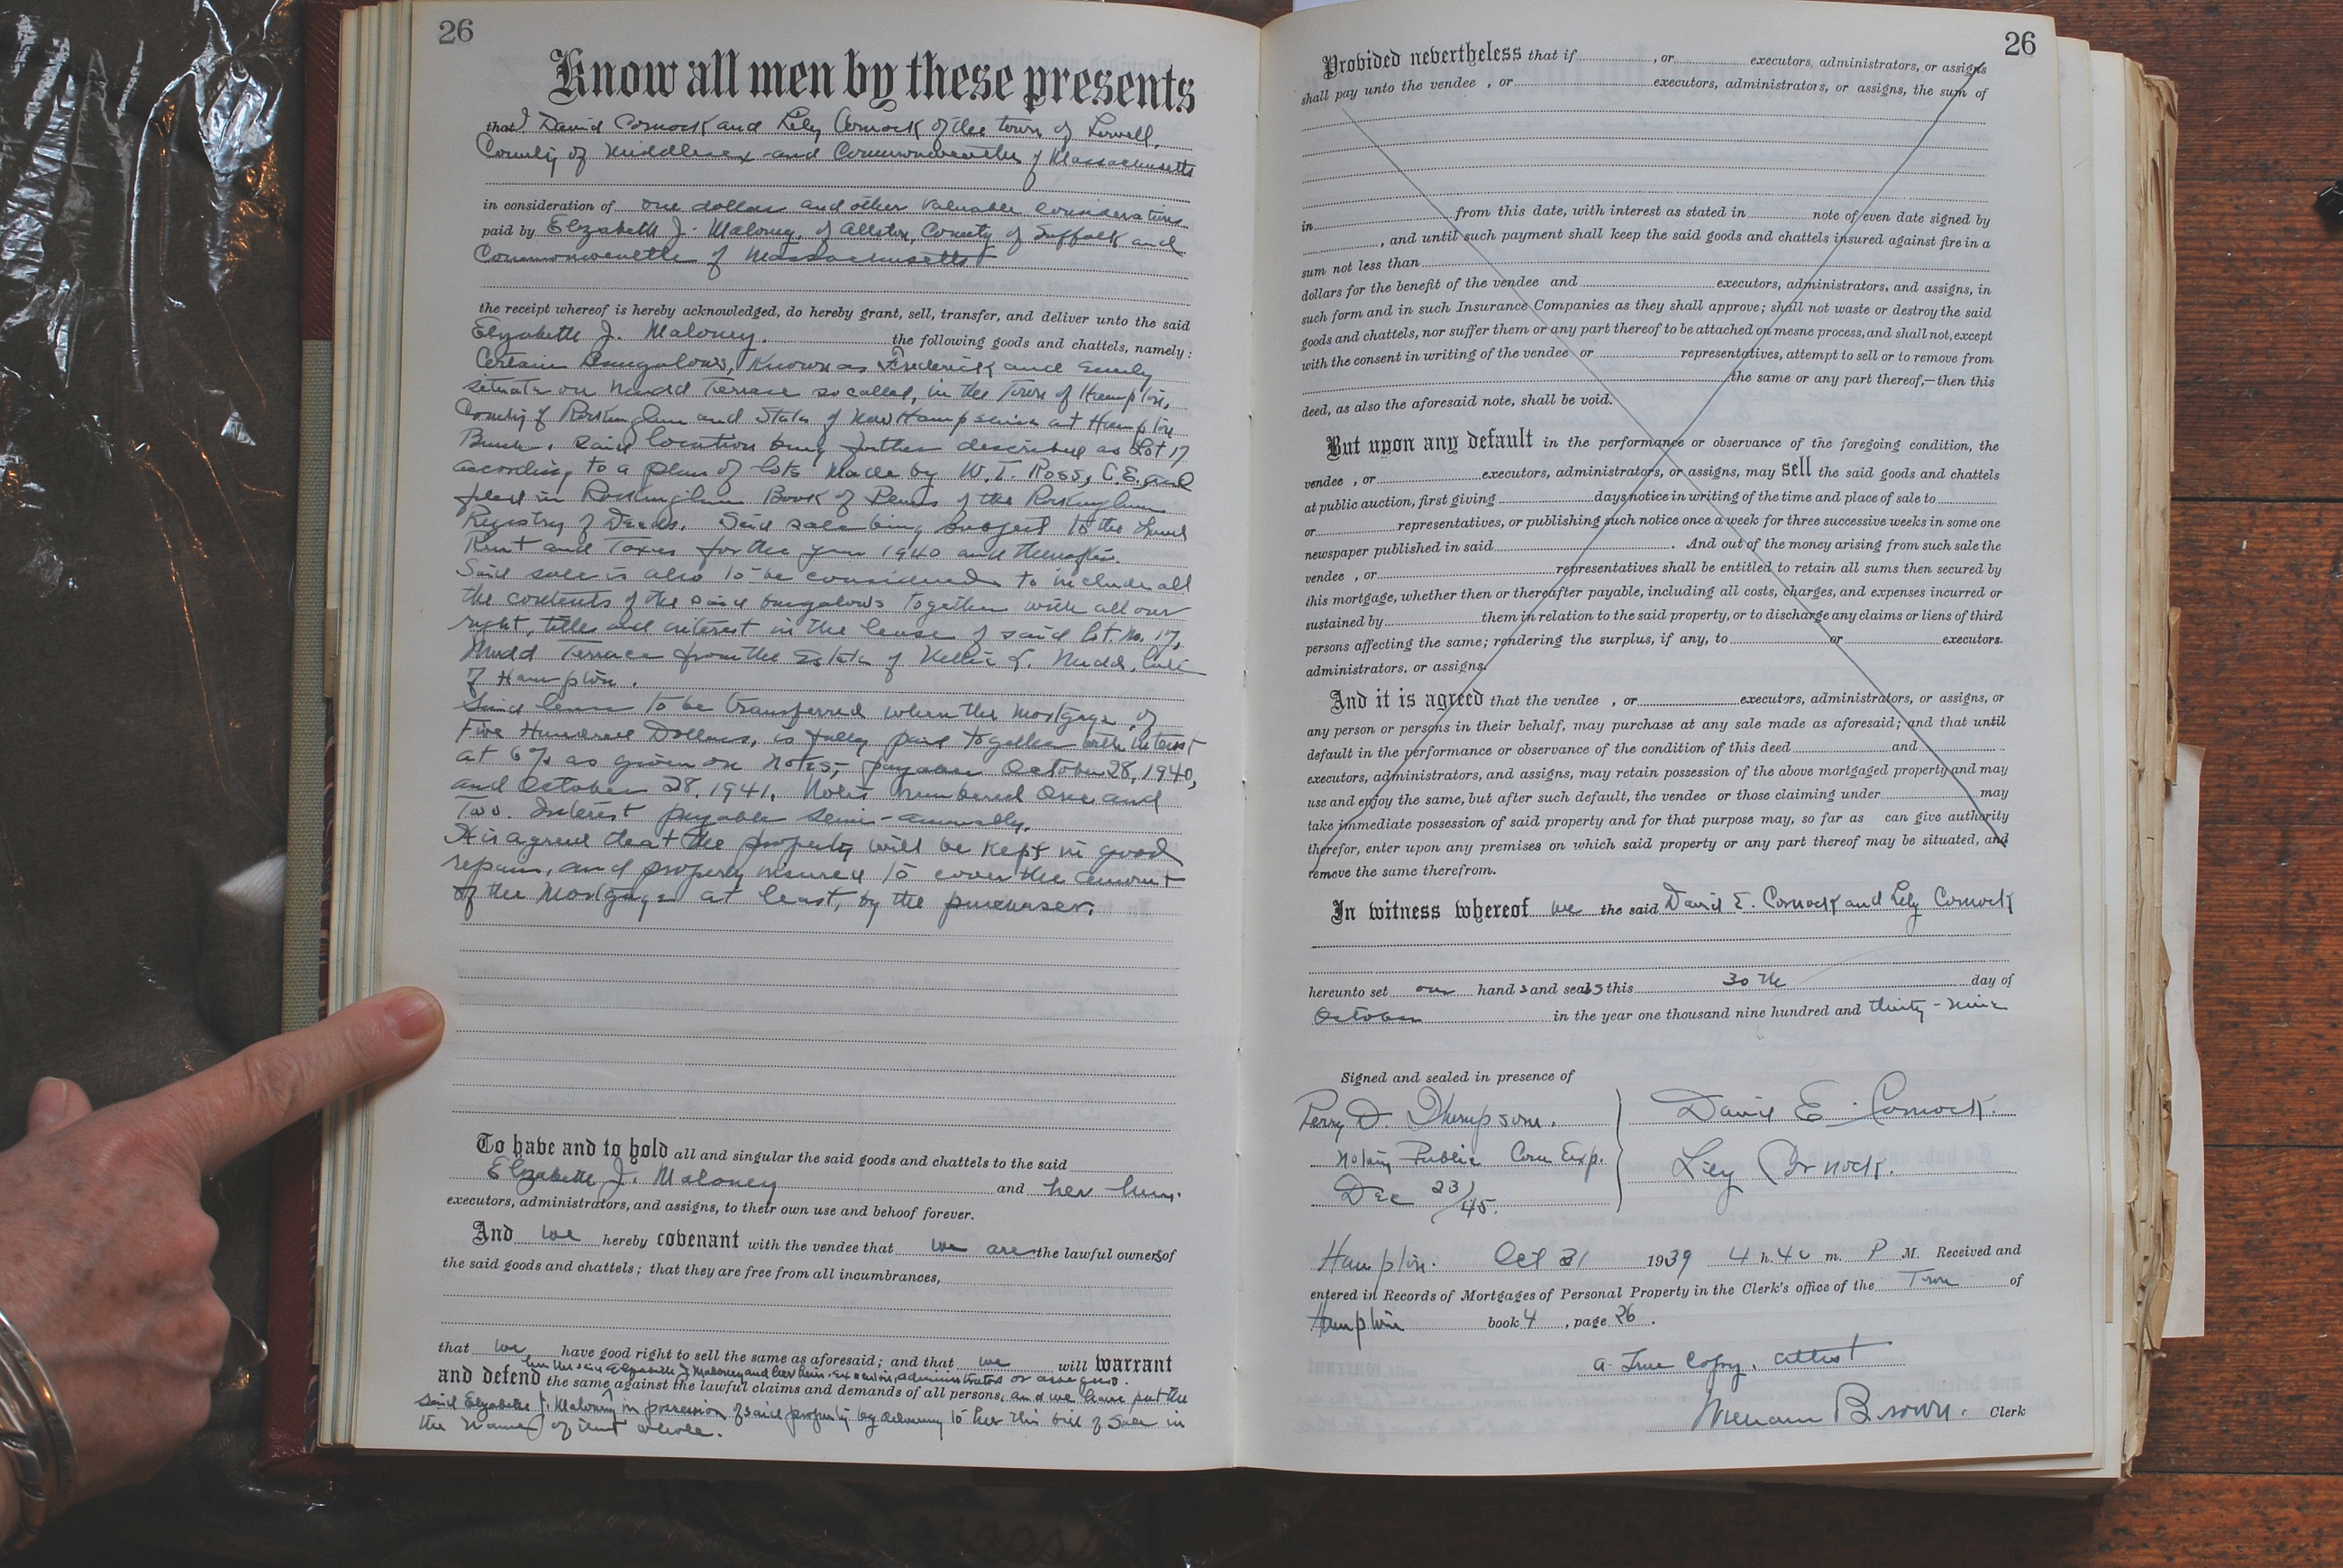 26
Know all men by these presents
that David Cornock and Lily Cornock of the town of Lowell,
County of Middlesex and Commonwealth of Massachusetts
in consideration of one dollar and other valuable considerations
paid by Elizabeth J. Maloney, of Allston, County of Suffolk and
Commonwealth of Massachusetts
the receipt whereof is hereby acknowledged, do hereby grant, sell, transfer, and deliver unto the said
Elizabeth J. Maloney. the following goods and chattels, namely:
Certain Bungalows, Known as Frederick and Emily
situate on Nudd Terrace so called, in the Town of Hampton,
County of Rockingham and State of New Hampshire at Hampton
Beach. Said location being further described as Lot 17
according to a plan of lots made by W. T. Ross, C.E. and
filed in Rockingham Book of Plans of the Rockingham
Registry of Deeds. Said sale being subject to the Land
Rent and Taxes for the year 1940 and thereafter.
Said sale is also to be considered to include all
the contents of the said bungalows together with all our
right, title and interest in the lease of said lot No. 17,
Nudd Terrace from the Estate of Nellie L. Nudd, late
of Hampton.
Said lease to be transferred when the mortgage of
Five Hundred Dollars, is fully paid together with interest
at 6% as given on notes, payable October 28, 1940,
and October 28, 1941. Notes numbered One and
Two. Interest payable semi-annually.
It is agreed that the property will be kept in good
repair, and properly insured to cover the amount
of the Mortgage at least, by the purchaser.
To have and to hold all and singular the said goods and chattels to the said
Elizabeth J. Maloney and her heirs.
executors, administrators, and assigns, to their own use and behoof forever.
And we hereby covenant with the vendee that we are the lawful owners of
the said goods and chattels; that they are free from all incumbrances,
that we have good right to sell the same as aforesaid; and that we will warrant
her the said Elizabeth J Maloney and her heirs, executors, administrators or assigns.
and defend the same against the lawful claims and demands of all persons, and we have put the
said Elizabeth J. Maloney in possession of said property by delivering to her this bill of Sale in
the name of the whole.
26
Provided nevertheless that if , or executors, administrators, or assigns
shall pay unto the vendee , or executors, administrators, or assigns, the sum of
in from this date, with interest as stated in note of even date signed by
, and until such payment shall keep the said goods and chattels insured against fire in a
sum not less than
dollars for the benefit of the vendee and executors, administrators, and assigns, in
such form and in such Insurance Companies as they shall approve; shall not waste or destroy the said
goods and chattels, nor suffer them or any part thereof to be attached on mesne process, and shall not, except
with the consent in writing of the vendee or representatives, attempt to sell or to remove from
the same or any part thereof,—then this
deed, as also the aforesaid note, shall be void.
But upon any default in the performance or observance of the foregoing condition, the
vendee , or executors, administrators, or assigns, may sell the said goods and chattels
at public auction, first giving days notice in writing of the time and place of sale to
or representatives, or publishing such notice once a week for three successive weeks in some one
newspaper published in said . And out of the money arising from such sale the
vendee , or representatives shall be entitled to retain all sums then secured by
this mortgage, whether then or thereafter payable, including all costs, charges, and expenses incurred or
sustained by them in relation to the said property, or to discharge any claims or liens of third
persons affecting the same; rendering the surplus, if any, to or executors.
administrators, or assigns.
And it is agreed that the vendee , or executors, administrators, or assigns, or
any person or persons in their behalf, may purchase at any sale made as aforesaid; and that until
default in the performance or observance of the condition of this deed and
executors, administrators, and assigns, may retain possession of the above mortgaged property and may
use and enjoy the same, but after such default, the vendee or those claiming under may
take immediate possession of said property and for that purpose may, so far as can give authority
therefor, enter upon any premises on which said property or any part thereof may be situated, and
remove the same therefrom.
In witness whereof we the said David E. Cornock and Lily Cornock
hereunto set our hands and seals this 30 th day of
October in the year one thousand nine hundred and thirty-nine
Signed and sealed in presence of
Perry D. Thompson.
Notary Public Com Exp.
Dec 23/45.
David E. Cornock.
Lily Cornock.
Hampton. Oct 31 1939 4 h. 40 m. P M. Received and
entered in Records of Mortgages of Personal Property in the Clerk's office of the Town of
Hampton book 4 , page 26 .
a True Copy. attest
William Brown. Clerk